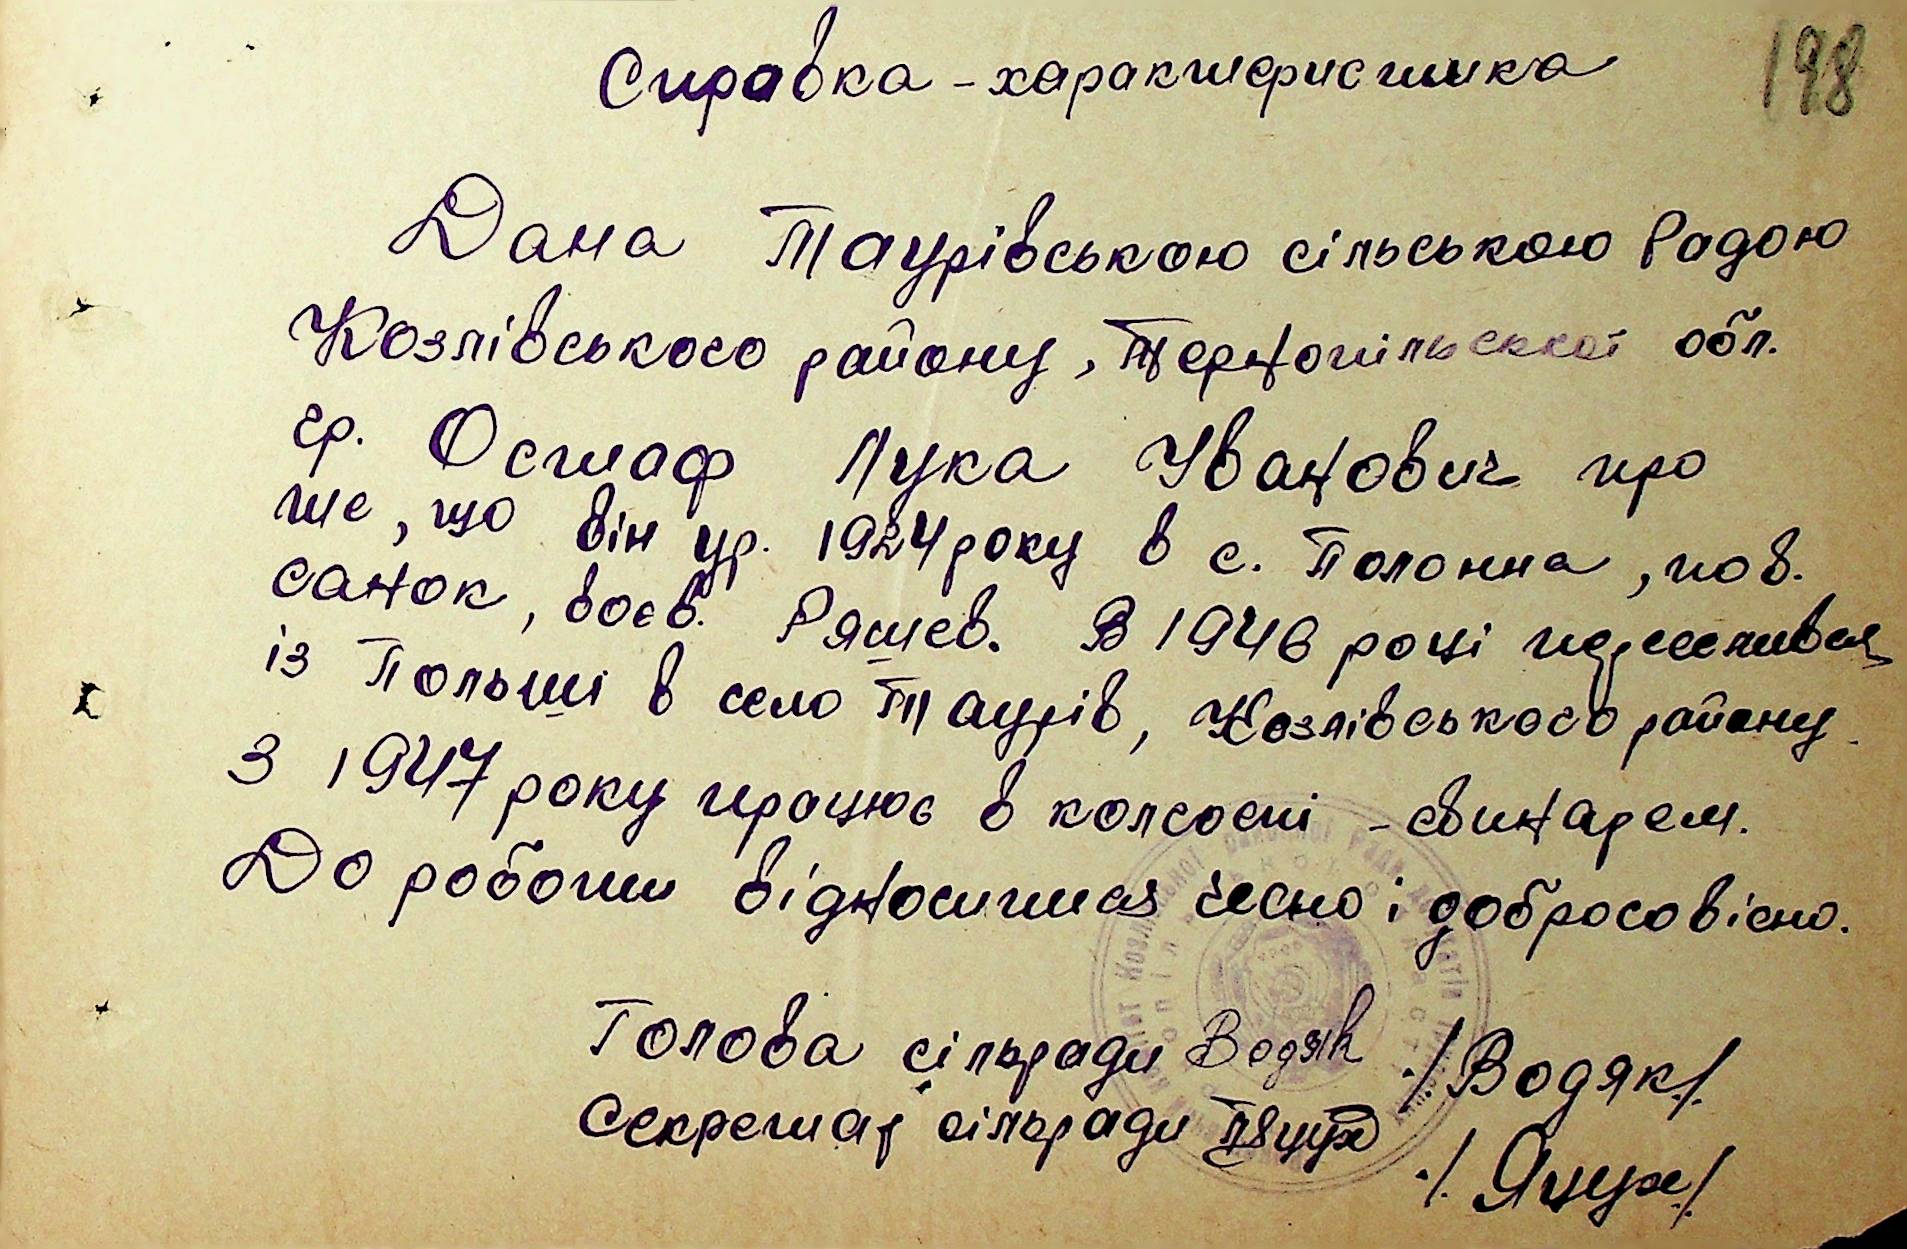 198
Справка - характеристика
Дана Таурівською сільською Радою
Козлівського району, Тернопільської обл.
гр. Осташ Лука Іванович про
те, що він ур. 1924 року в с. Полонна, пов.
Санок, воєв. Ряшев. В 1946 році переселився
із Польші в село Таурів, Козлівського району
З 1947 року працює в колгоспі - свинарем.
До роботи відноситься чесно і добросовісно.
Голова сільради Водяк /Водяк/.
Секретар сільради Яцух /Яцух/.